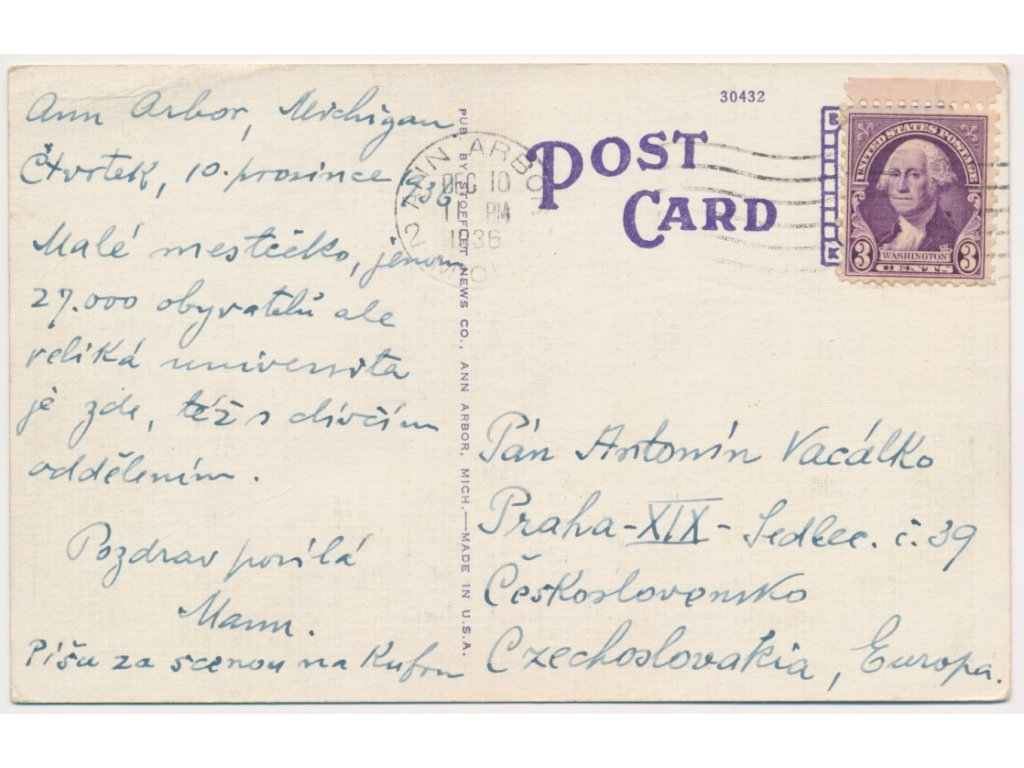 Ann Arbor, Michigan
Čtvrtek, 10. prosince 936
Malé mestečko, jenom
27.000 obyvatelů ale
veliká universita
je zde, též s dívčím
oddělením.
Pozdrav posílá
Mann.
Píšu za scenou na Kufru
PUB. BY STOFFLET NEWS CO., ANN ARBOR, MICH.—MADE IN U.S.A.
30432
POST
CARD
ANN ARBOR
2
DEC 10
11 PM
1936
UNITED STATES POSTAGE
WASHINGTON
3 CENTS 3
Pán Antonín Vacálko
Praha-XIX- Sedlec. č. 39
Československo
Czechoslovakia, Europa.